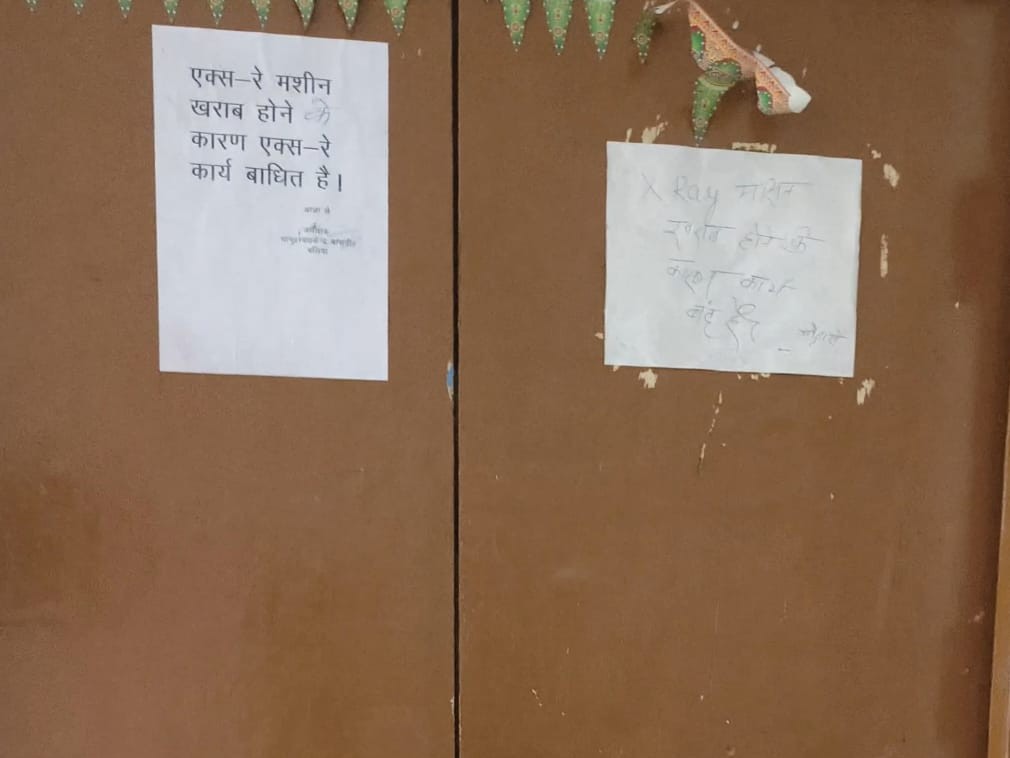 एक्स-रे मशीन
खराब होने के
कारण एक्स-रे
कार्य बाधित है।
आज्ञा से
अधीक्षक
बलिया
X Ray मशिन
खराब होने के
कारण कार्य
बंद है